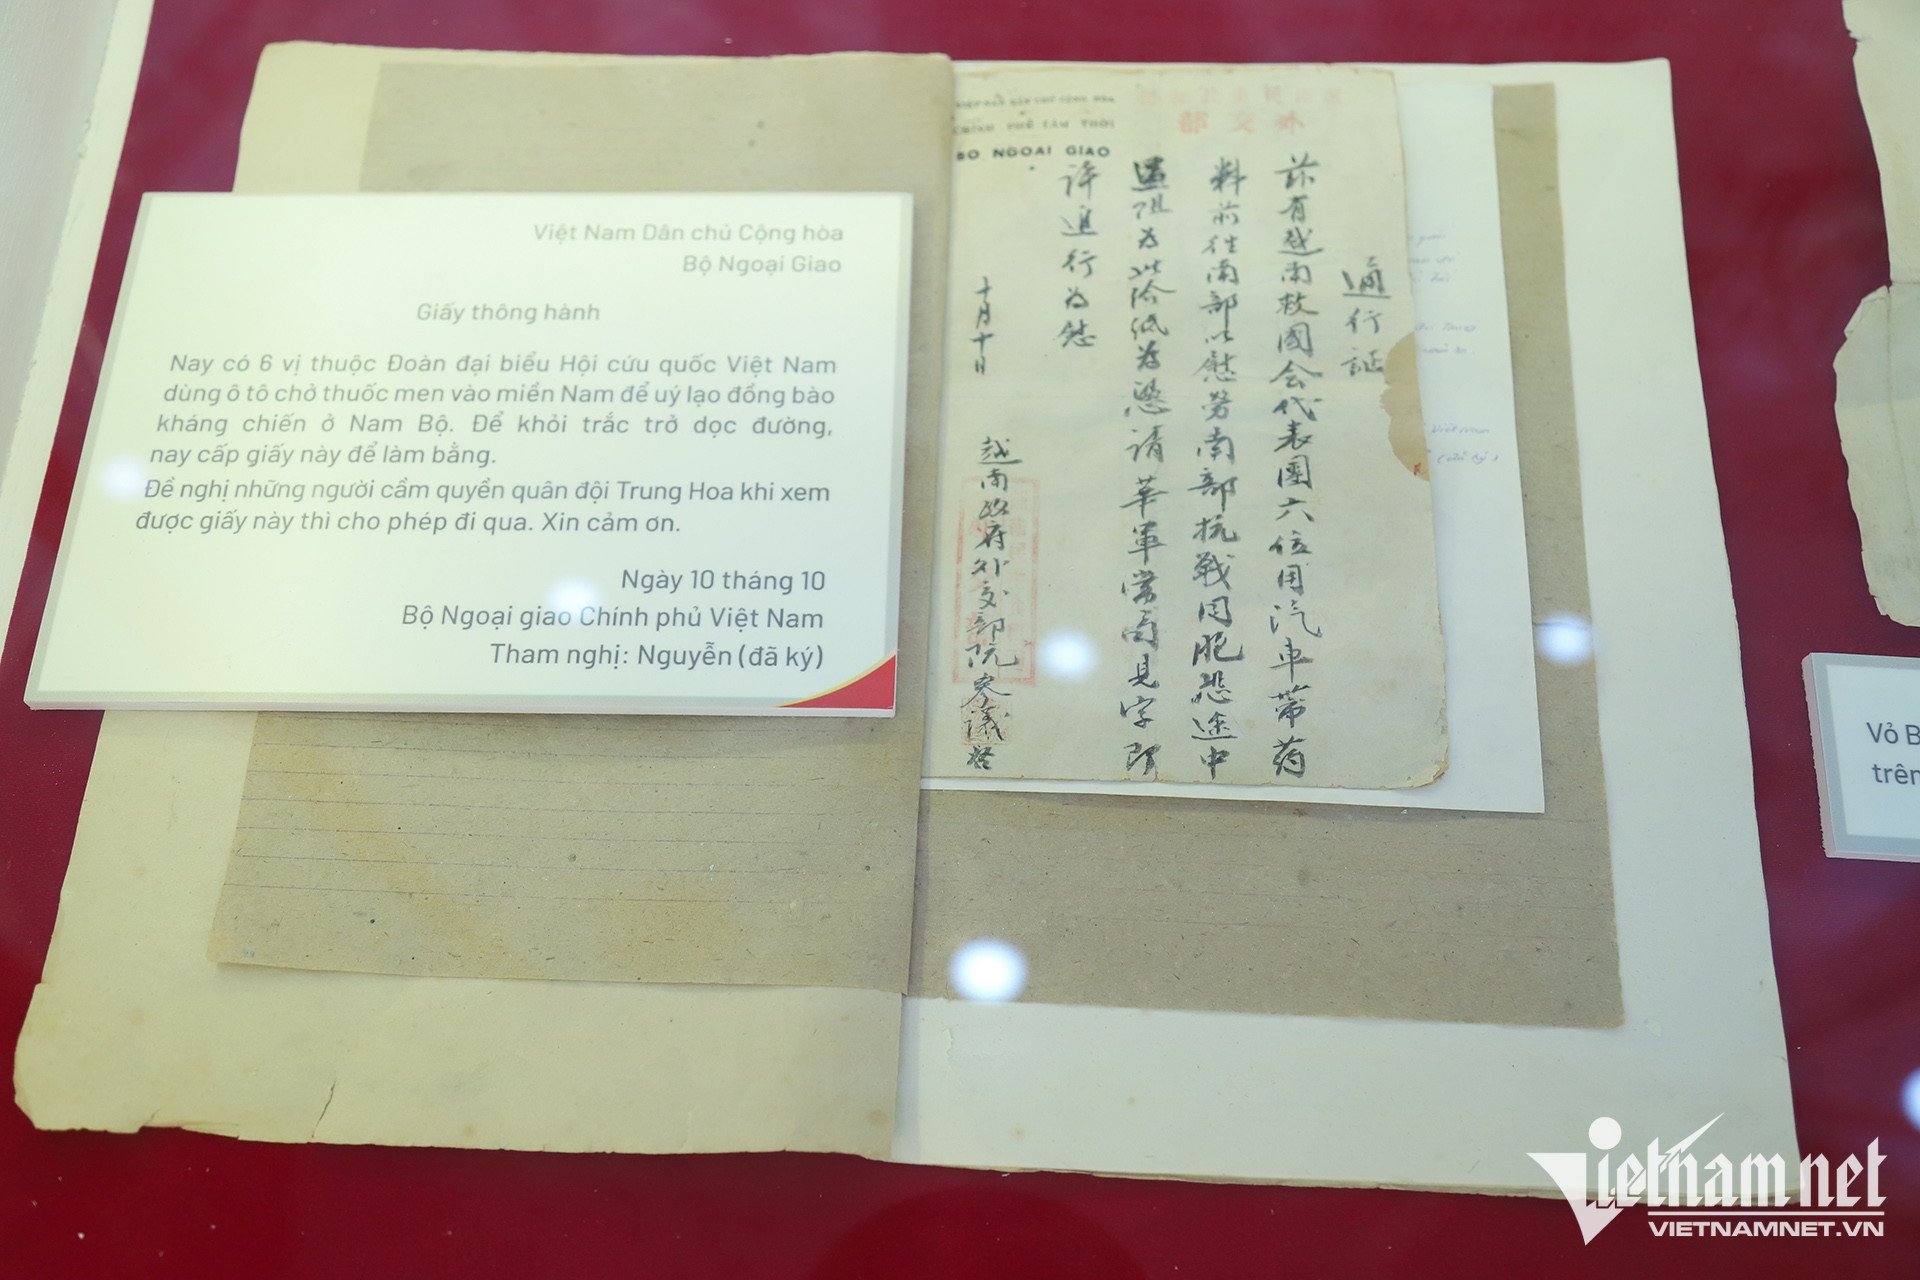 Việt Nam Dân chủ Cộng hòa
Bộ Ngoại Giao
Giấy thông hành
Nay có 6 vị thuộc Đoàn đại biểu Hội cứu quốc Việt Nam
dùng ô tô chở thuốc men vào miền Nam để uý lạo đồng bào
kháng chiến ở Nam Bộ. Để khỏi trắc trở dọc đường,
nay cấp giấy này để làm bằng.
Đề nghị những người cầm quyền quân đội Trung Hoa khi xem
được giấy này thì cho phép đi qua. Xin cảm ơn.
Ngày 10 tháng 10
Bộ Ngoại giao Chính phủ Việt Nam
Tham nghị: Nguyễn (đã ký)
BO NGOAI GIAO
外交部
通行証
茲有越南救國会代表團六位用汽車带药
料前往南部以慰劳南部抗战同胞恐途中
遇阻为此给纸为憑請華軍當局見字即
許通行为慰
十月十日
越南政府外交部阮参議
Vỏ B
trên
Vietnamnet
VIETNAMNET.VN